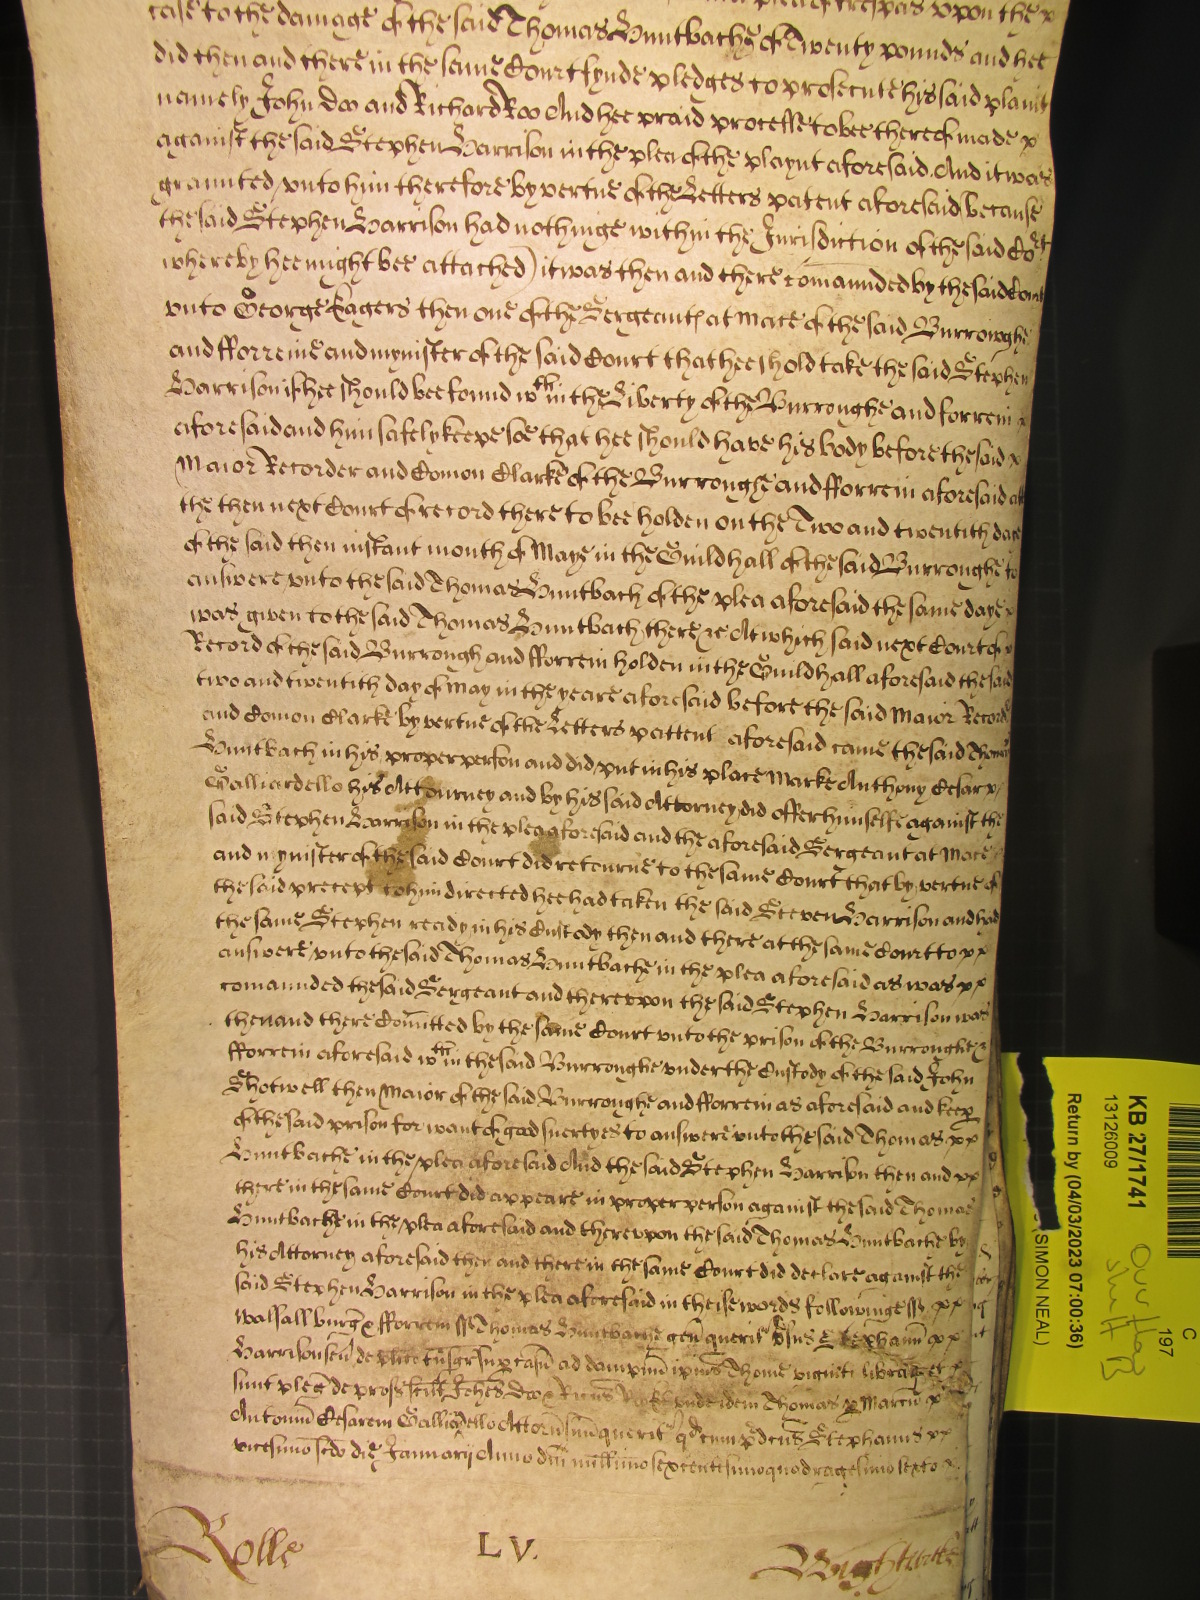 case to the damage of the said Thomas Huntbache of Twenty pounds and hee
did then and there in the same Court fynde pledges to prosecute his said plaint
namely John Doo and Richard Roo And hee praid processe to bee thereof made
against the said Stephen Harrison in the plea of the playnt aforesaid And it was
graunted vnto him therefore by vertue of the Letters patent aforesaid because
the said Stephen Harrison had nothinge within the Jurisdiction of the said Cort
whereby hee might bee attached) it was then and there comaunded by the said Court
vnto George Eagers then one of the Sergeants at Mace of the said Burroughe
and fforreine and mynister of the said Court that hee shold take the said Stephen
Harrison if hee should bee found wth in the Liberty of the Burroughe and forrein
aforesaid and him safely keepe soe that hee should have his body before the said
Maior Recorder and Comon Clarke of the Burroughe and fforrein aforesaid att
the then next Court of record there to bee holden on the Two and twentith daye
of the said then instant month of Maye in the Guildhall of the said Burroughe to
answere vnto the said Thomas Huntbach of the plea aforesaid the same daye
was given to the said Thomas Huntbach there &c At which said next Court of
Record of the said Burrough and fforrein holden in the Guildhall aforesaid the said
two and twentith day of May in the yeare aforesaid before the said Maior Recorder
and Comon Clarke by vertue of the Letters pattent aforesaid came the said Thomas
Huntbach in his proper person and did put in his place Marke Anthony Cesar
Galliardello his Attourney and by his said Attorney did offer himselfe against the
said Stephen Harrison in the plea aforesaid and the aforesaid Sergeant at Mace
and mynister of the said Court did retourne to the same Court that by vertue of
the said precept to him directed hee had taken the said Steven Harrison and had
the same Stephen ready in his Custody then and there at the same Court to
answere vnto the said Thomas Huntbache in the plea aforesaid as was
comaunded the said Sergeant and therevpon the said Stephen Harrison was
then and there Comitted by the same Court vnto the prison of the Burroughe &
fforrein aforesaid wth in the said Burroughe vnder the Custody of the said John
Shotwell then Maior of the said Burroughe and fforrein as aforesaid and keeper
of the said prison for want of good suertyes to answere vnto the said Thomas
Huntbache in the plea aforesaid And the said Stephen Harrison then and
there in the same Court did appeare in proper person against the said Thomas
Huntbache in the plea aforesaid and therevpon the said Thomas Huntbache by
his Attorney aforesaid then and there in the same Court did declare against the
said Stephen Harrison in the plea aforesaid in theise words followinge ss
Walsall burg & fforrein ss Thomas Huntbache gen querit vsus Stephanu
Harrison de plito tnsgr sup casu ad dampnu ipius Thome viginti librar et
sunt pleg de pros scilt Johes Doo Ricus Roo Et vnde idem Thomas p Marcu
Antoniu Cesarem Galliardello Attorn suu querit qd cum pdcus Stephanus
vicesimo scdo die Januarij Anno dni millimo sexcentesimo quodragesimo sexto
Rolle LV.
KB 27/1741
13126009
Return by (04/03/2023 07:00:36)
(SIMON NEAL)
C
197